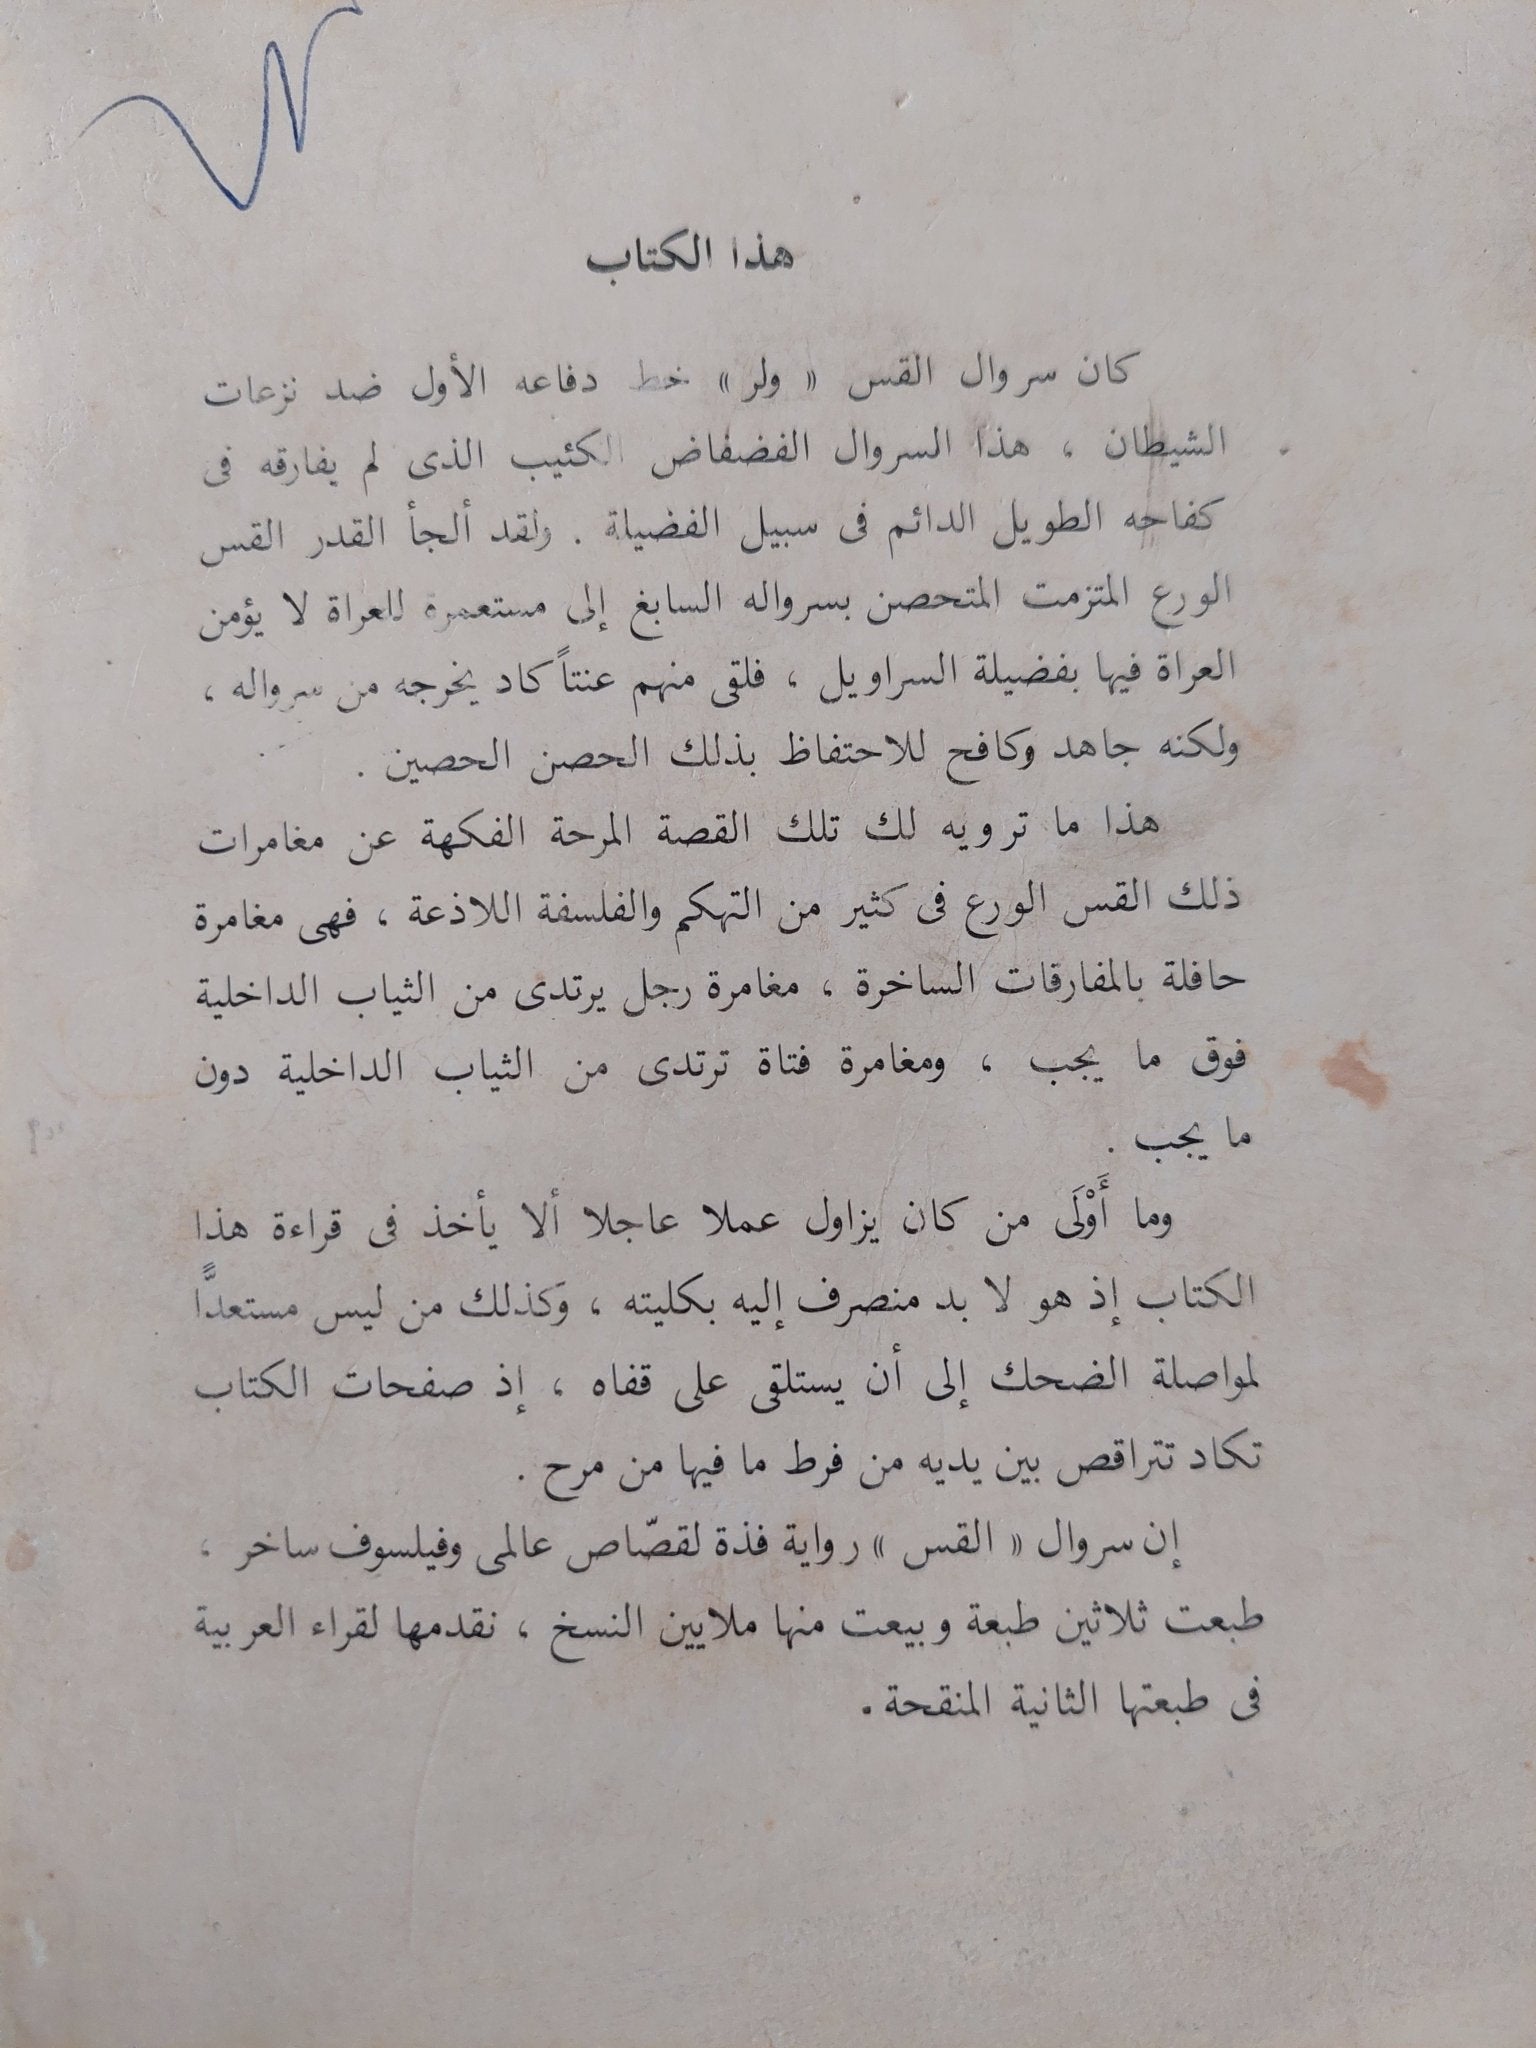 هذا الكتاب
كان سروال القس « ولر » خط دفاعه الأول ضد نزعات
الشيطان ، هذا السروال الفضفاض الكئيب الذى لم يفارقه فى
كفاحه الطويل الدائم فى سبيل الفضيلة . ولقد ألجأ القدر القس
الورع المتزمت المتحصن بسرواله السابغ إلى مستعمرة للعراة لا يؤمن
العراة فيها بفضيلة السراويل ، فلقى منهم عنتاً كاد يخرجه من سرواله ،
ولكنه جاهد وكافح للاحتفاظ بذلك الحصن الحصين .
هذا ما ترويه لك تلك القصة المرحة الفكهة عن مغامرات
ذلك القس الورع فى كثير من التهكم والفلسفة اللاذعة ، فهى مغامرة
حافلة بالمفارقات الساخرة ، مغامرة رجل يرتدى من الثياب الداخلية
فوق ما يجب ، ومغامرة فتاة ترتدى من الثياب الداخلية دون
ما يجب .
وما أَوْلَى من كان يزاول عملا عاجلا ألا يأخذ فى قراءة هذا
الكتاب إذ هو لا بد منصرف إليه بكليته ، وَكذلك من ليس مستعدًّا
لمواصلة الضحك إلى أن يستلقى على قفاه ، إذ صفحات الكتاب
تكاد تتراقص بين يديه من فرط ما فيها من مرح .
إن سروال « القس » رواية فذة لقصّاص عالمى وفيلسوف ساخر ،
طبعت ثلاثين طبعة وبيعت منها ملايين النسخ ، نقدمها لقراء العربية
فى طبعتها الثانية المنقحة .